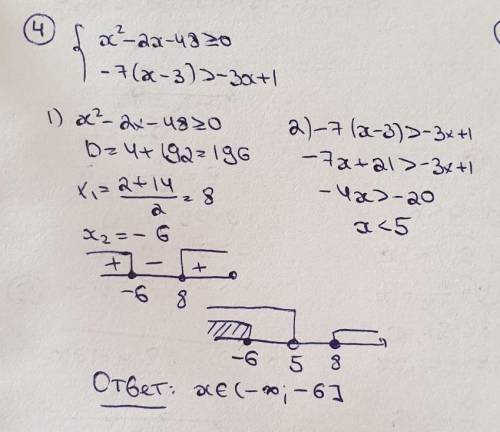 4
x²-2x-48≥0
-7(x-3)>-3x+1
1) x²-2x-48≥0
D=4+192=196
x₁=2+14/2=8
x₂=-6
+ - +
-6 8
2) -7(x-3)>-3x+1
-7x+21>-3x+1
-4x>-20
x<5
-6 5 8
Ответ: x∈(-∞;-6]